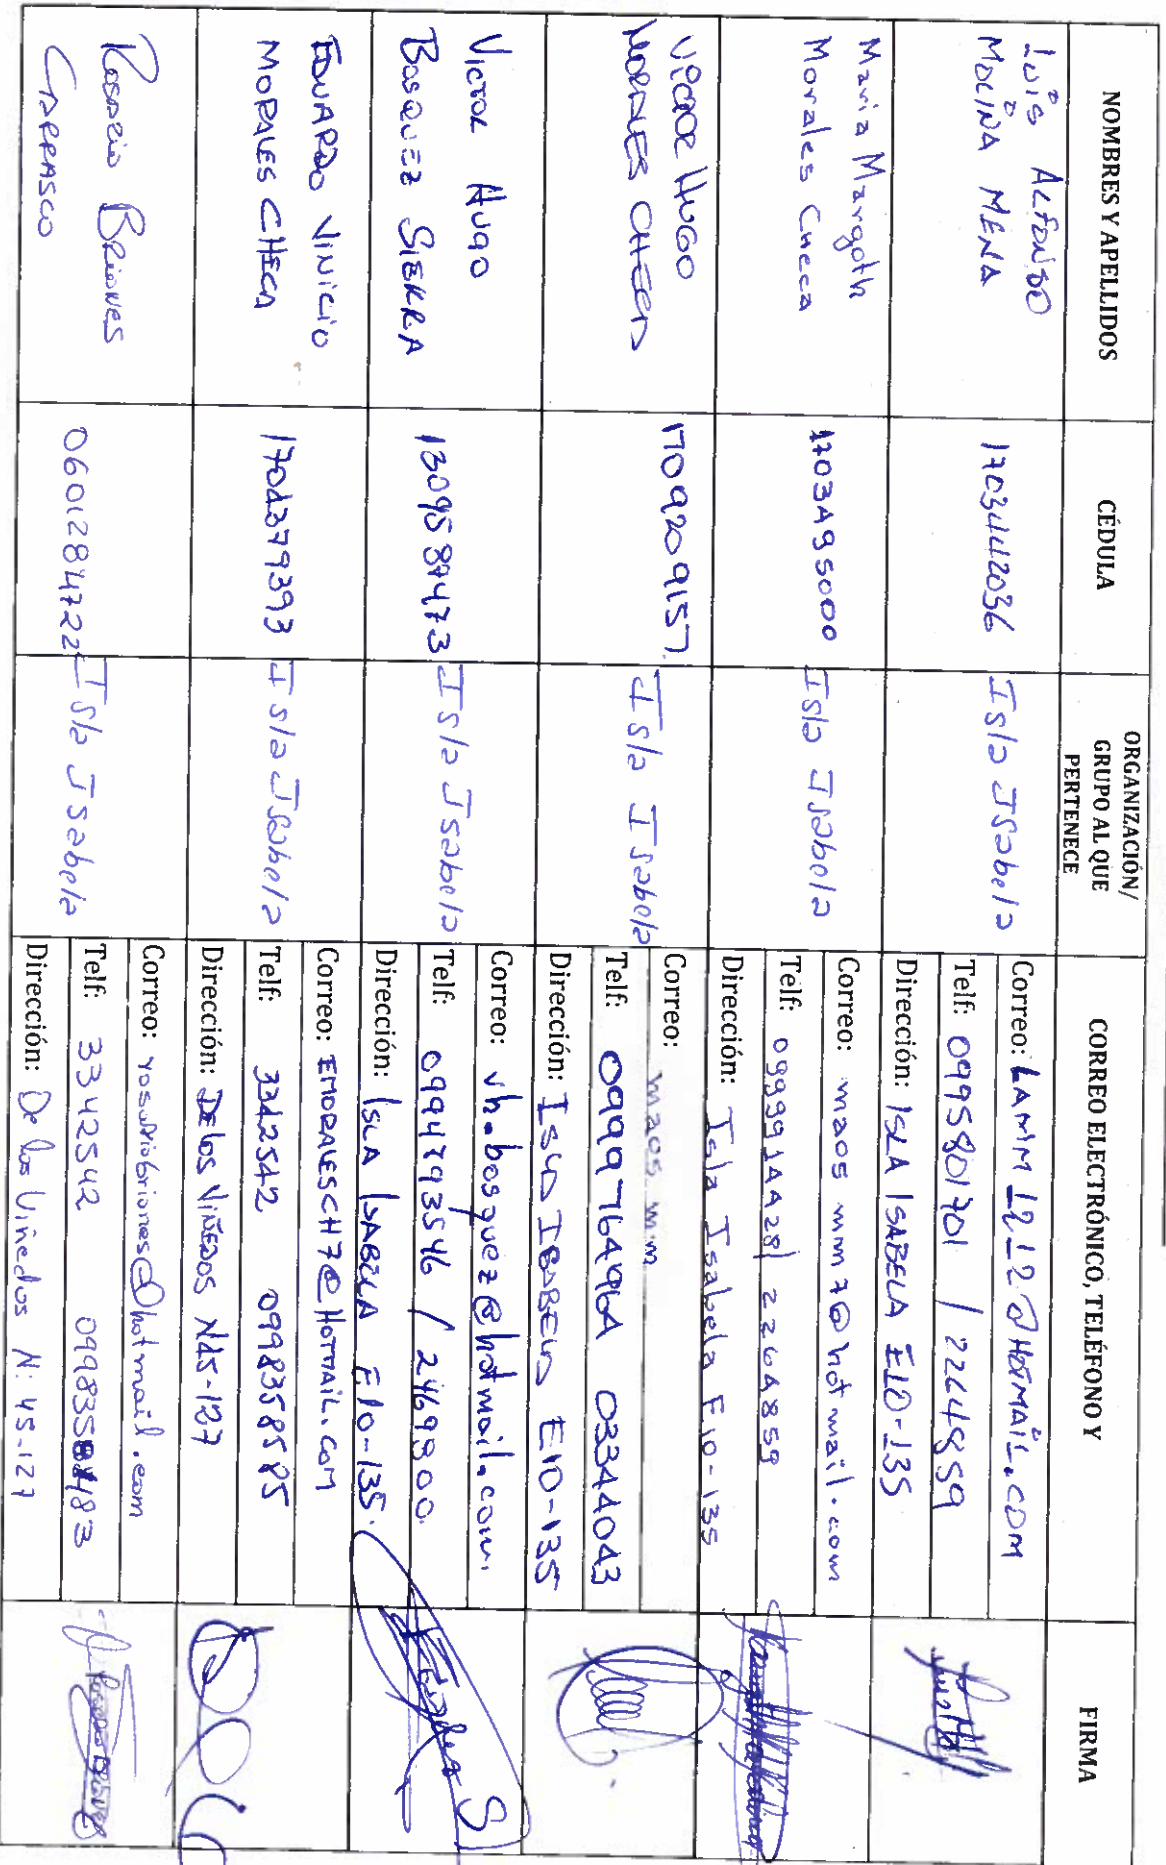 NOMBRES Y APELLIDOS
CÉDULA
ORGANIZACIÓN/
GRUPO AL QUE
PERTENECE
CORREO ELECTRÓNICO, TELÉFONO Y
FIRMA
Luis Alfonso
Molina Mena
1703442036
Isla Isabela
Correo: LAMM1212@HOTMAIL.COM
Telf: 0995801701 / 2264859
Dirección: ISLA ISABELA E10-135
Maria Margoth
Morales Cueca
1703495000
Isla Isabela
Correo: maos mm7@hotmail.com
Telf: 0999914428 / 2264859
Dirección: Isla Isabela E10-135
Victor Hugo
Morales
1709209157
Isla Isabela
Correo: maos m.m
Telf: 0999764964 03344043
Dirección: Isla Isabela E10-135
Victor Hugo
Bosquez Sierra
1309587473
Isla Isabela
Correo: vh.bosquez@hotmail.com.
Telf: 0994793546 / 2469800.
Dirección: Isla Isabela E10-135.
EDUARDO VINICIO
MORALES CHECA
1702379393
Isla Isabela
Correo: EMORALESCH7@HOTMAIL.COM
Telf: 3342542 0998358585
Dirección: De los Viñedos N45-127
Rosario Briones
Carrasco
0601284722
Isla Isabela
Correo: rosariobriones@hotmail.com
Telf: 3342542
Dirección: De los Viñedos N: 45-127